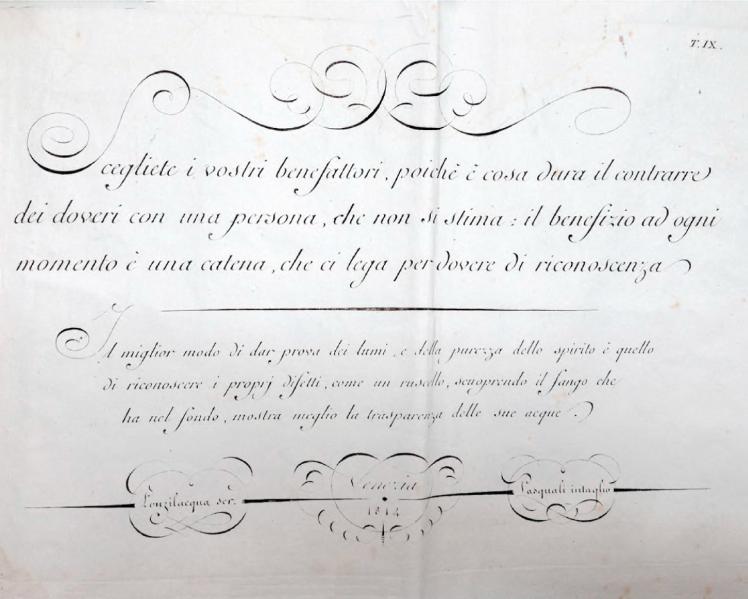 T. IX.
Scegliete i vostri benefattori, poichè è cosa dura il contrarre
dei doveri con una persona, che non si stima: il benefizio ad ogni
momento è una catena, che ci lega per dovere di riconoscenza
Il miglior modo di dar prova dei lumi, e della purezza dello spirito è quello
di riconoscere i proprj difetti, come un ruscello, scuoprendo il fango che
ha nel fondo, mostra meglio la trasparenza delle sue acque.
Ponzilacqua scr.
Venezia
1814
Pasquali intagliò